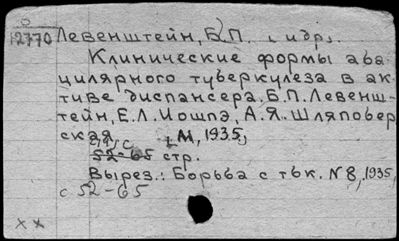 12770 Левенштейн, Б.П. и др.
Клинические формы аба-
цилярного туберкулеза в ак-
тиве диспансера. Б.П. Левенш-
тейн, Е.Л. Иошпэ, А.Я. Шляповер-
ская
М, 1935,
52-65 стр.
Вырез.: Борьба с тбк. N 8, 1935,
с 52-65
хх